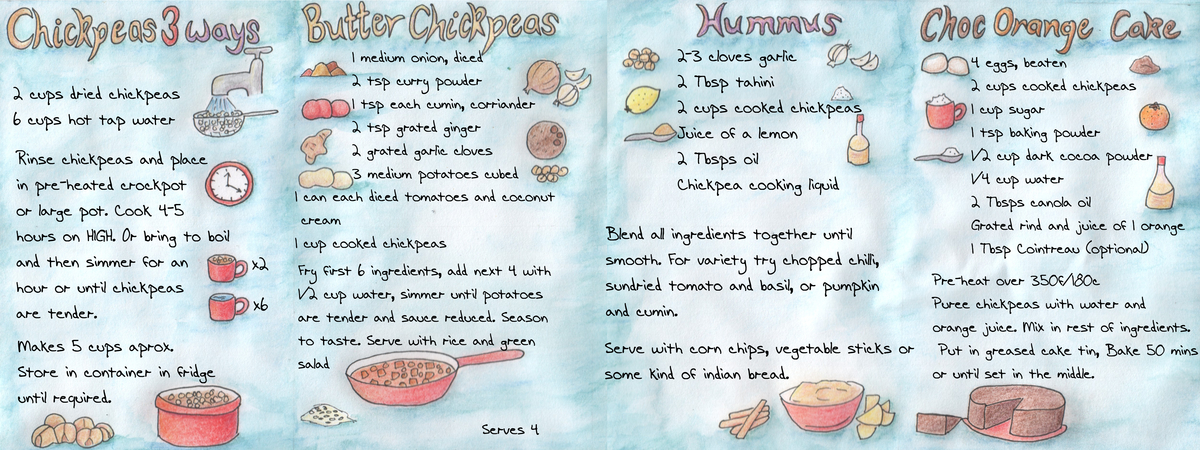 Chickpeas 3 ways
2 cups dried chickpeas
6 cups hot tap water
Rinse chickpeas and place
in pre-heated crockpot
or large pot. Cook 4-5
hours on HIGH. Or bring to boil
and then simmer for an
hour or until chickpeas
are tender.
x2
x6
Makes 5 cups aprox.
Store in container in fridge
until required.
Butter Chickpeas
1 medium onion, diced
2 tsp curry powder
1 tsp each cumin, corriander
2 tsp grated ginger
2 grated garlic cloves
3 medium potatoes cubed
1 can each diced tomatoes and coconut
cream
1 cup cooked chickpeas
Fry first 6 ingredients, add next 4 with
1/2 cup water, simmer until potatoes
are tender and sauce reduced. Season
to taste. Serve with rice and green
salad
Serves 4
Hummus
2-3 cloves garlic
2 Tbsp tahini
2 cups cooked chickpeas
Juice of a lemon
2 Tbsps oil
Chickpea cooking liquid
Blend all ingredients together until
smooth. For variety try chopped chilli,
sundried tomato and basil, or pumpkin
and cumin.
Serve with corn chips, vegetable sticks or
some kind of indian bread.
Choc Orange Cake
4 eggs, beaten
2 cups cooked chickpeas
1 cup sugar
1 tsp baking powder
1/2 cup dark cocoa powder
1/4 cup water
2 Tbsps canola oil
Grated rind and juice of 1 orange
1 Tbsp Cointreau (optional)
Pre-heat over 350f/180c
Puree chickpeas with water and
orange juice. Mix in rest of ingredients.
Put in greased cake tin, Bake 50 mins
or until set in the middle.